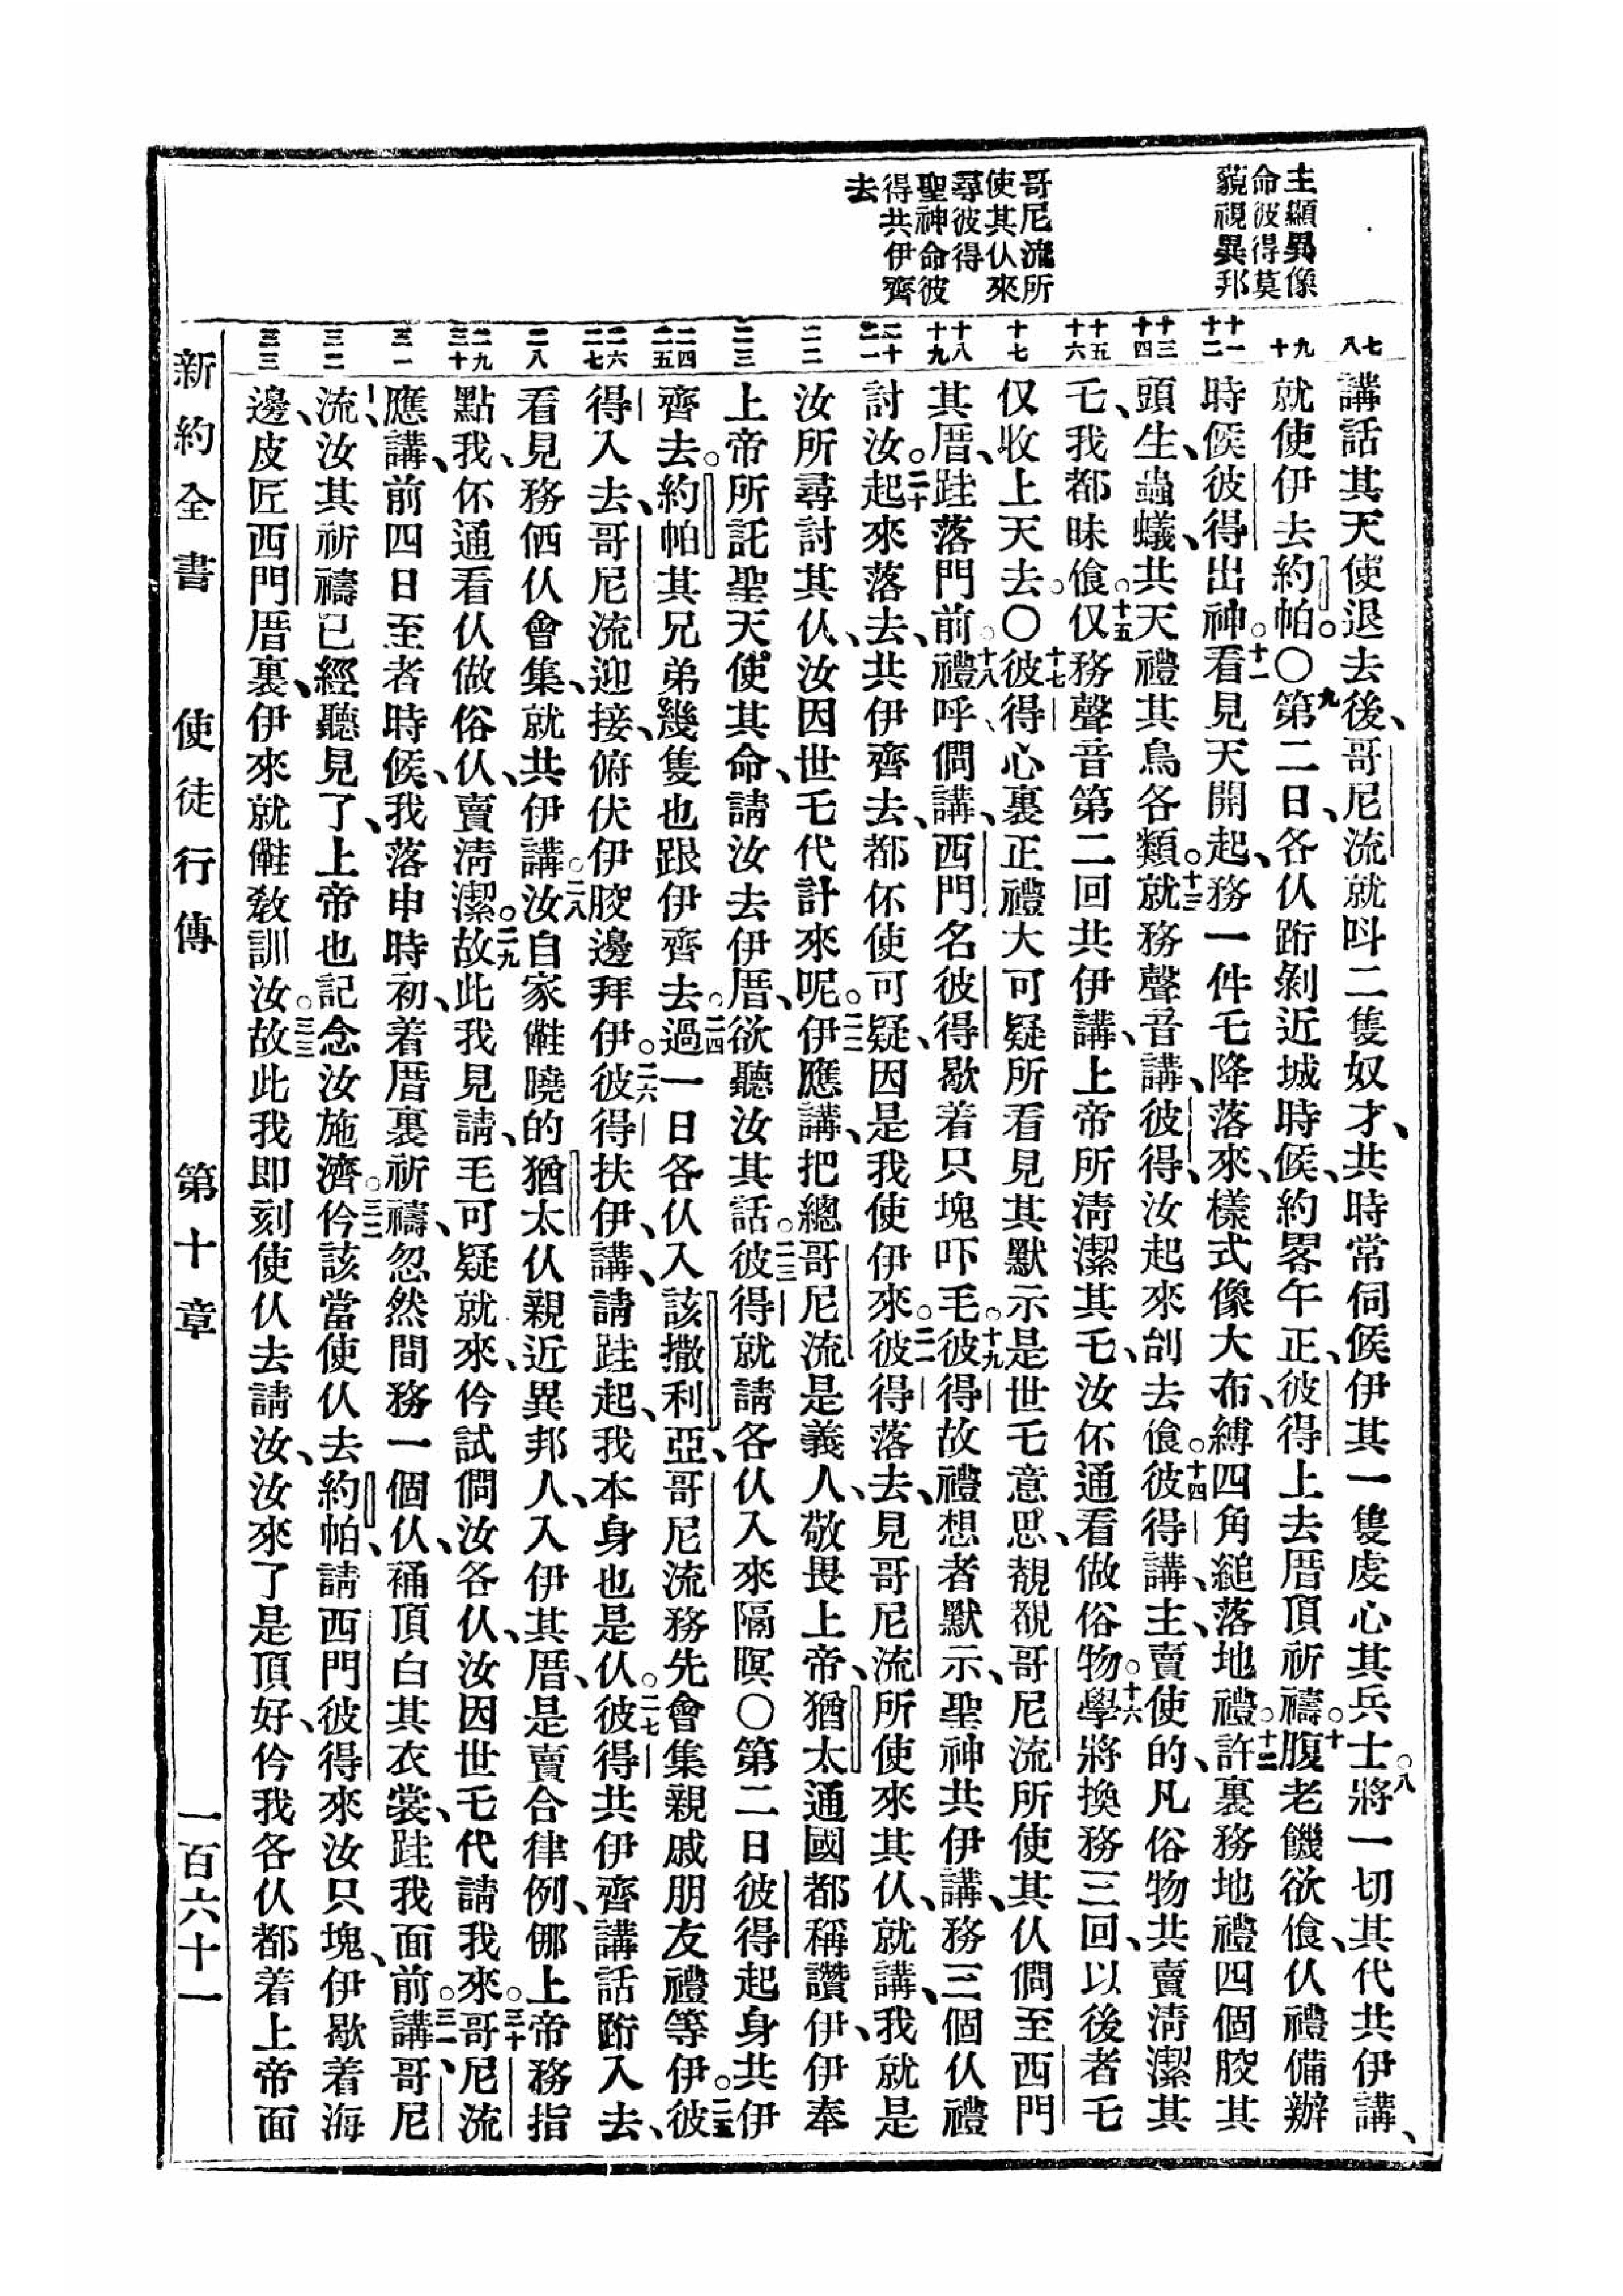 主顯異像
命彼得莫
藐視異邦
哥尼流所
使其仫來
尋彼得
聖神命彼
得共伊齊
去
七
八
九
十
十一
十二
十三
十四
十五
十六
十七
十八
十九
二十
二一
二二
二三
二四
二五
二六
二七
二八
二九
三十
三一
三二
三三
講話其天使退去後、哥尼流就呌二隻奴才、共時常伺候伊其一隻虔心其兵士。八將一切其代共伊講、
就使伊去約帕。〇九第二日、各仫跻剝近城時候、約畧午正、彼得上去厝頂祈禱。十腹老饑欲飧、仫禮備辦
時候、彼得出神。十一看見天開起、務一件乇降落來、樣式像大布、縛四角縋落地禮。十二許裏務地禮四個骹其
頭生、蟲蟻、共天禮其鳥各類。十三就務聲音講、彼得、汝起來刣去飧。十四彼得講、主、賣使的、凡俗物共賣淸潔其
乇、我都昧飧。十五仅務聲音第二回共伊講、上帝所淸潔其乇、汝伓通看做俗物。十六學將換務三回、以後者乇
仅收上天去。〇十七彼得心裏正禮大可疑所看見其默示是世乇意思、覩覩哥尼流所使其仫倜至西門
其厝、跬落門前。十八禮呼倜講、西門名彼得、歇着只塊吓毛。十九彼得故禮想者默示、聖神共伊講、務三個仫禮
討汝。二十起來落去、共伊齊去、都伓使可疑、因是我使伊來。二一彼得落去、見哥尼流所使來其仫、就講、我就是
汝所尋討其仫、汝因世乇代計來呢。二二伊應講、把總哥尼流是義人、敬畏上帝、猶太通國都稱讚伊、伊奉
上帝所託聖天使其命、請汝去伊厝、欲聽汝其話。二三彼得就請各仫入來隔暝〇第二日彼得起身共伊
齊去。約帕其兄弟幾隻也跟伊齊去。二四過一日各仫入該撒利亞、哥尼流務先會集親戚朋友禮等伊。二五彼
得入去、哥尼流迎接、俯伏伊骹邊拜伊。二六彼得扶伊、講、請跬起、我本身也是仫。二七彼得共伊齊講話跻入去、
看見務価仫會集、就共伊講。二八汝自家㒕曉的猶太仫親近異邦人、入伊其厝、是賣合律例、㑚上帝務指
點我、伓通看仫做俗仫、賣淸潔。二九故此我見請、毛可疑就來、仱試倜汝各仫、汝因世乇代請我來。三十哥尼流
應講、前四日至者時候、我落申時初、着厝裏祈禱、忽然間務一個仫、䘄頂白其衣裳、跬我面前。三一講、哥尼
流、汝其祈禱已經聽見了、上帝也記念汝施濟。三二仱該當使仫去約帕、請西門彼得來汝只塊、伊歇着海
邊、皮匠西門厝裏、伊來就㒕敎訓汝。三三故此我即刻使仫去請汝、汝來了是頂好、仱我各仫都着上帝面
新約全書　使徒行傳　第十章　一百六十一